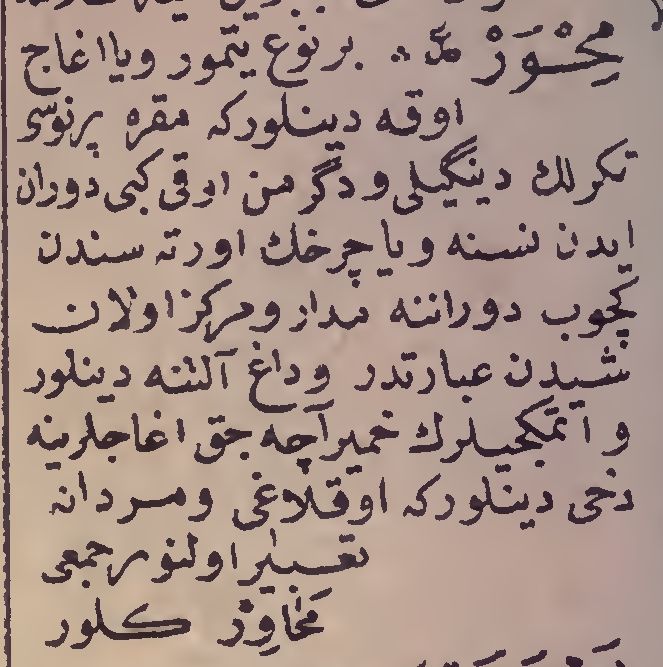 مِحْوَرْ بر نوع یتمور ویا اغاج
اوقه دینلورکه مقره پرنوسی
تکرلك دینگیلی و دگرمن اوقی کبی دوران
ایدن نسنه ویا چرخك اورته سندن
کچوب دوراننه مدار و مرکز اولان
شیدن عبارتدر و داغ آلتنه دینلور
و اتمکجیلرك خمیر آچه جق اغاجلرینه
دخی دینلورکه اوقلاغی و مردانه
تعبیر اولنور جمعی
مَحَاوِرْ کلور